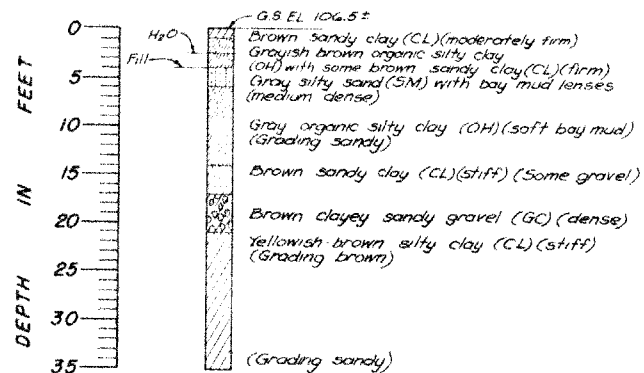 G.S. EL 106.5±
0
Brown sandy clay (CL) (moderately firm)
H2O
Grayish brown organic silty clay
Fill
(OH) with some brown sandy clay (CL) (firm)
5
Gray silty sand (SM) with bay mud lenses
(medium dense)
10
Gray organic silty clay (OH) (soft bay mud)
(Grading sandy)
15
Brown sandy clay (CL) (stiff) (Some gravel)
20
Brown clayey sandy gravel (GC) (dense)
Yellowish-brown silty clay (CL) (stiff)
(Grading brown)
25
30
35
(Grading sandy)
DEPTH IN FEET